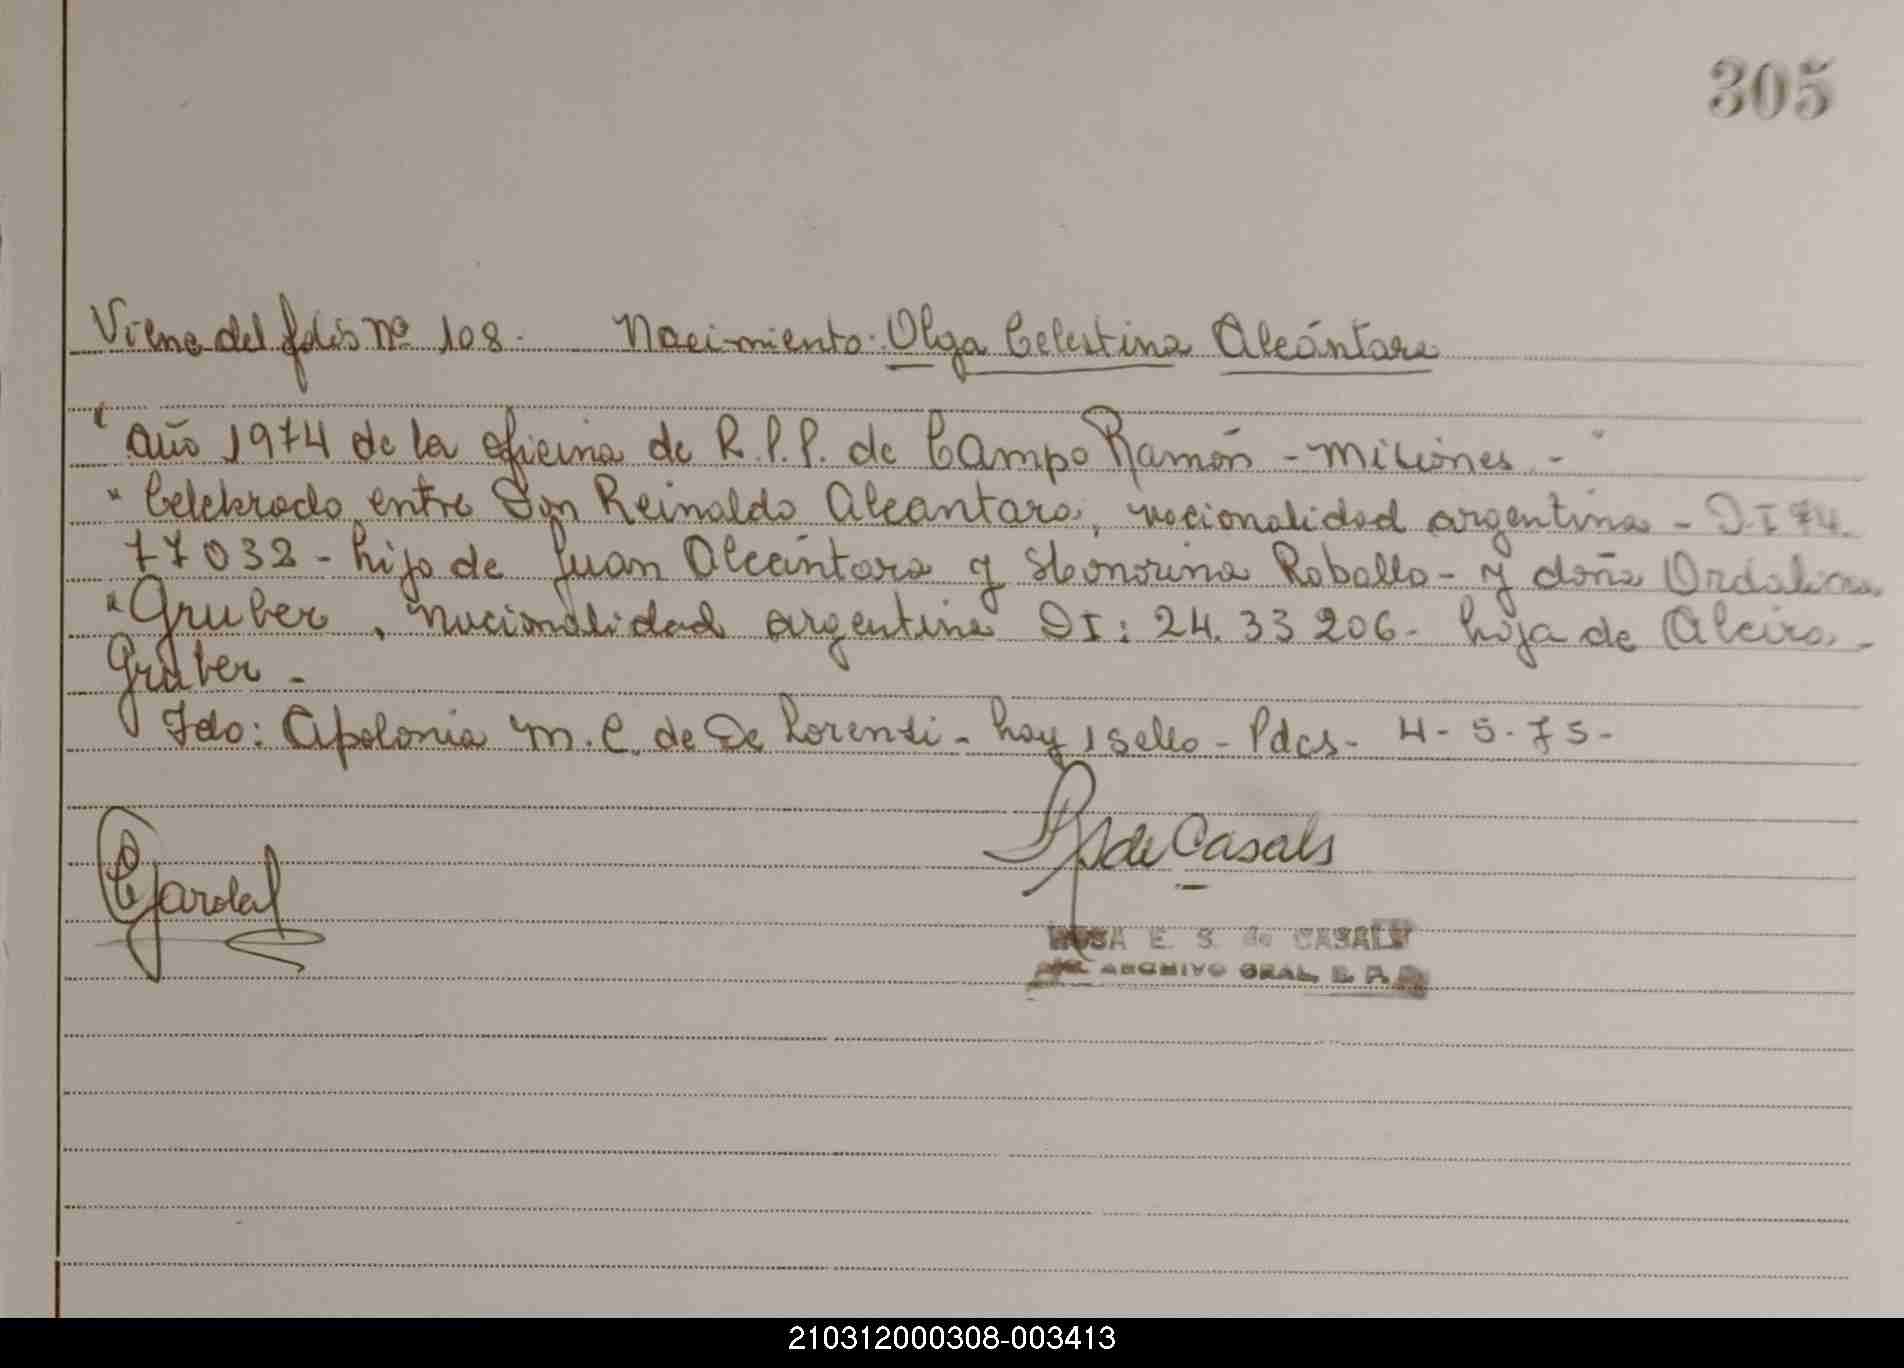 305
Viene del folio nº 108. Nacimiento: Olga Celestina Alcántara
" año 1974 de la oficina de R.P.P. de Campo Ramón - Misiones - "
" Celebrado entre Don Reinaldo Alcantara, nacionalidad argentina - D.I 74.
77032 - hijo de Juan Alcántara y Honorina Roballo - y doña Ordalina
" Gruber, nacionalidad argentina DI: 24.33 206 - hija de Alcira -
Gruber -
Fdo: Apolonia M. C. de De Lorenzi - hay 1 sello - Pdas - 4 - 5 - 75 -
de Casals
ROSA E. S. de CASALS
ARCHIVO GRAL R. P.
210312000308-003413